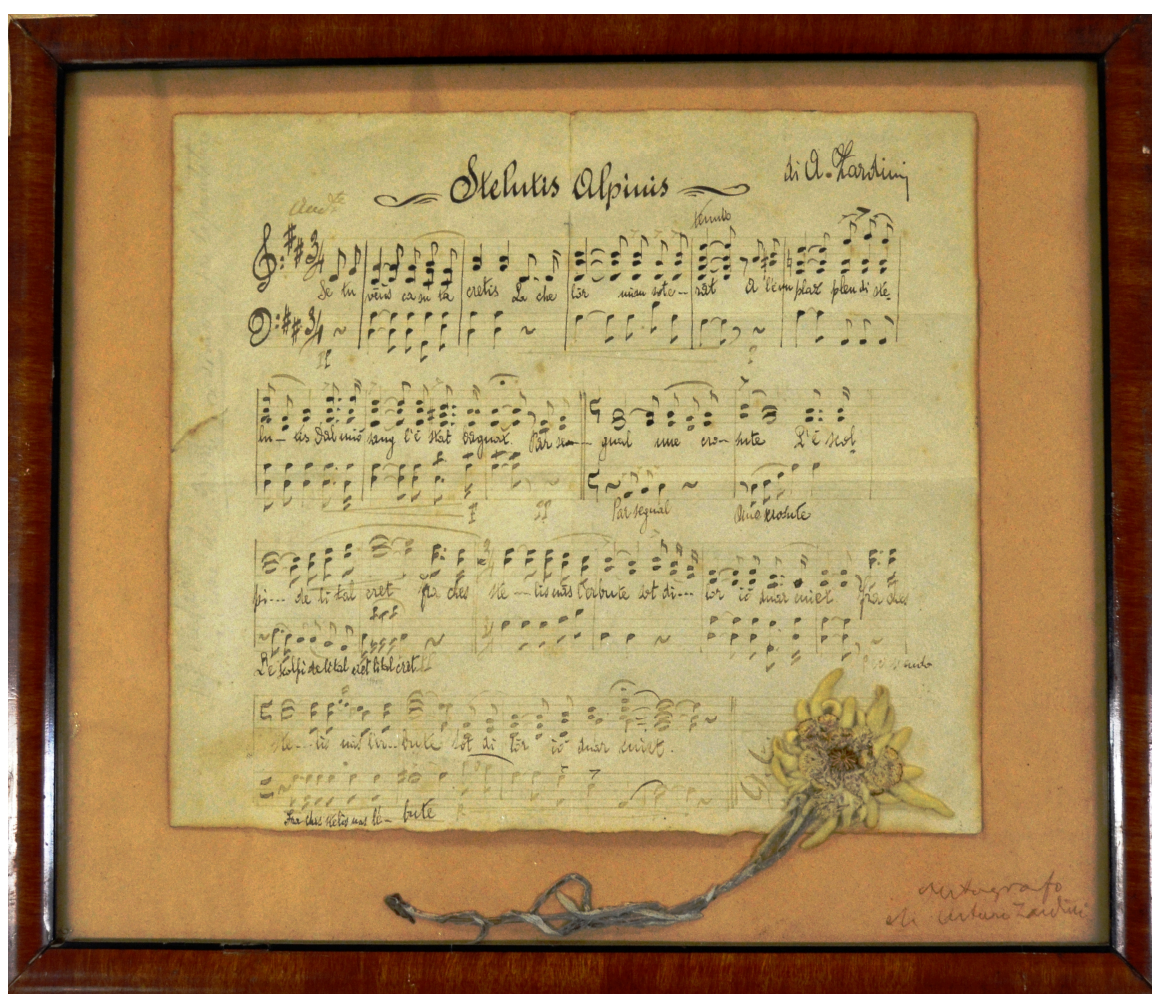 Stelutis Alpinis
di A. Zardini
And.te
tenuto
Se tu vens cà sù ta cretis Là che lôr mi àn sote-rât A l'è un plaz plen di ste-
lu-tis Dal miò sang l'è stât bagnât. Par se- gnal une cro- sute L'è scol
Par segnal Une crosute
pi--- de lì tal cret Fra ches ste-lis nas l'erbute sot di--- lôr iò duar cuiet Fra ches
L'e scolpi de li tal cret li tal cret
ste-lis nas l'er-bute sot di lôr iò duar cuiet.
Fra ches stelis nas l'e- bute
autografo
di Arturo Zardini